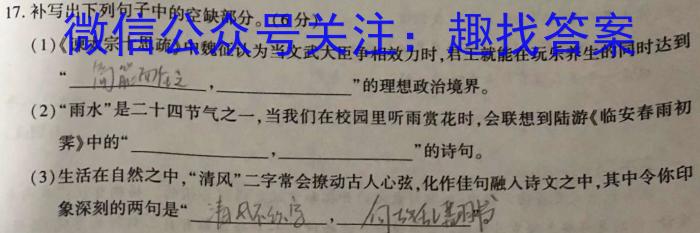 17.补写出下列句子中的空缺部分。(6分)
微信公众号关注：趣找答案
(1)《谏太宗十思疏》中魏征认为当文武大臣争相效力时,君主就能在玩乐养生的同时达到
“______,______”的理想政治境界。
(2)“雨水”是二十四节气之一,当我们在校园里听雨赏花时,会联想到陆游《临安春雨初
霁》中的“______,______”的诗句。
(3)生活在自然之中,“清风”二字常会撩动古人心弦,化作佳句融入诗文之中,其中令你印
象深刻的两句是“清风不识字,何故乱翻书